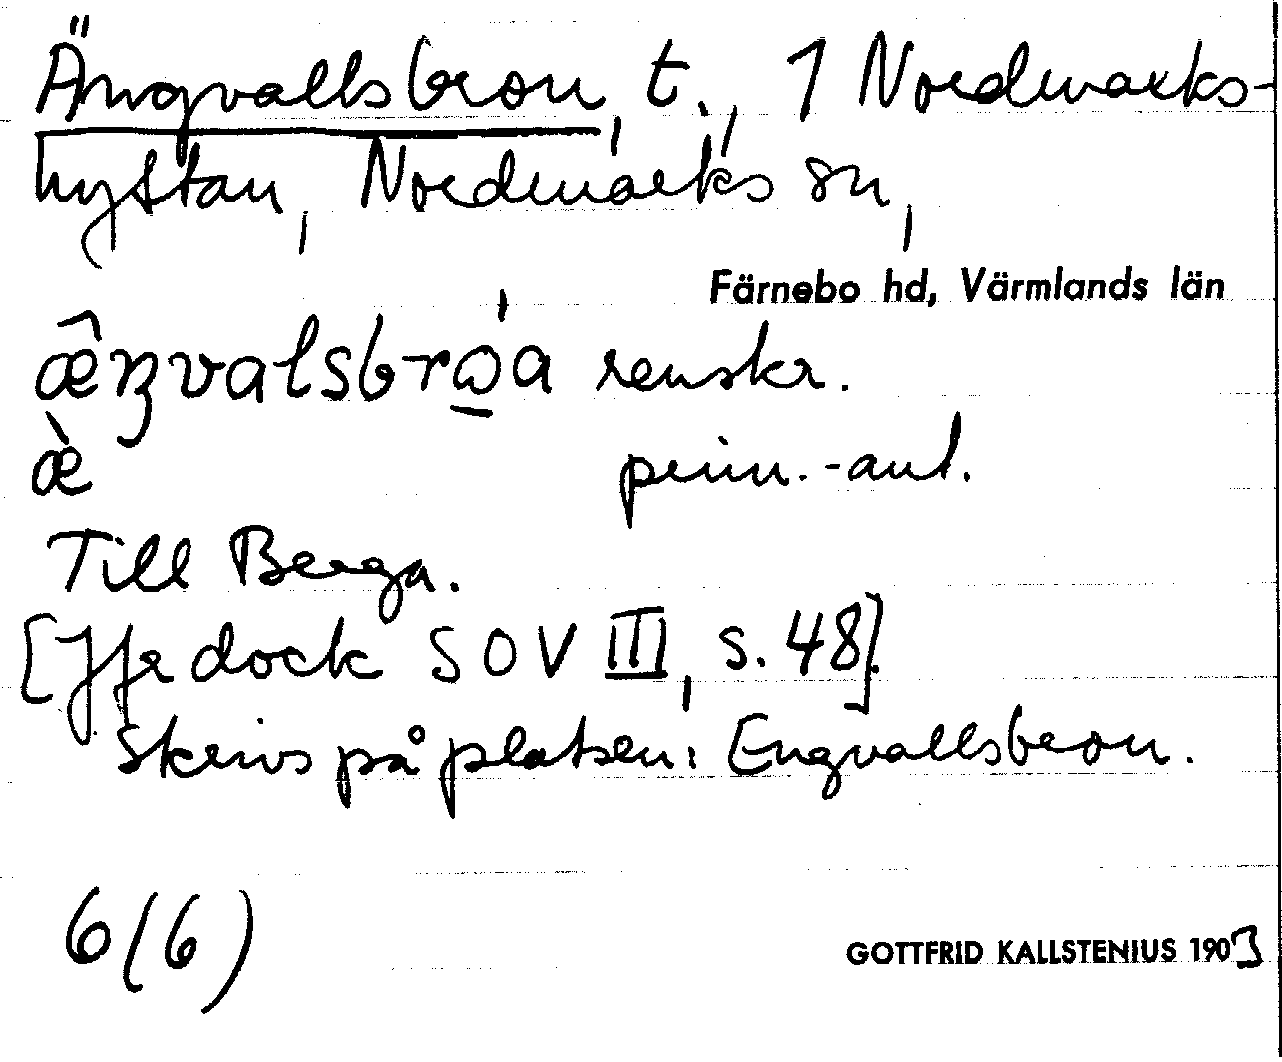 Ängvallsbron, t., 1 Nordmarks-
hyttan, Nordmarks sn,
Färnebo hd, Värmlands län
æ̂ŋvalsbrɷ̲́a renskr.
æ̀ prim.-ant.
Till Berga.
[Jfr dock SOV III, s. 48].
Skrivs på platsen: Engvallsbron.
6(6)
GOTTFRID KALLSTENIUS 1903